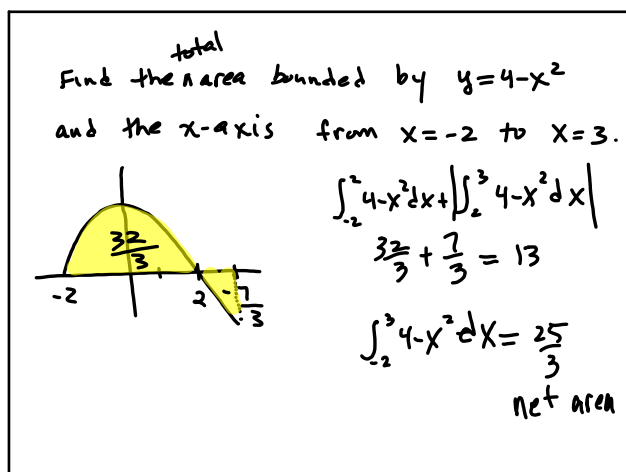 total
Find the ∧ area bounded by y=4-x²
and the x-axis from x=-2 to x=3.
∫₋₂² 4-x²dx+|∫₂³ 4-x²dx|
32/3 + 7/3 = 13
32/3
-2 2 -7/3 3
∫₋₂³ 4-x² dx = 25/3
net area